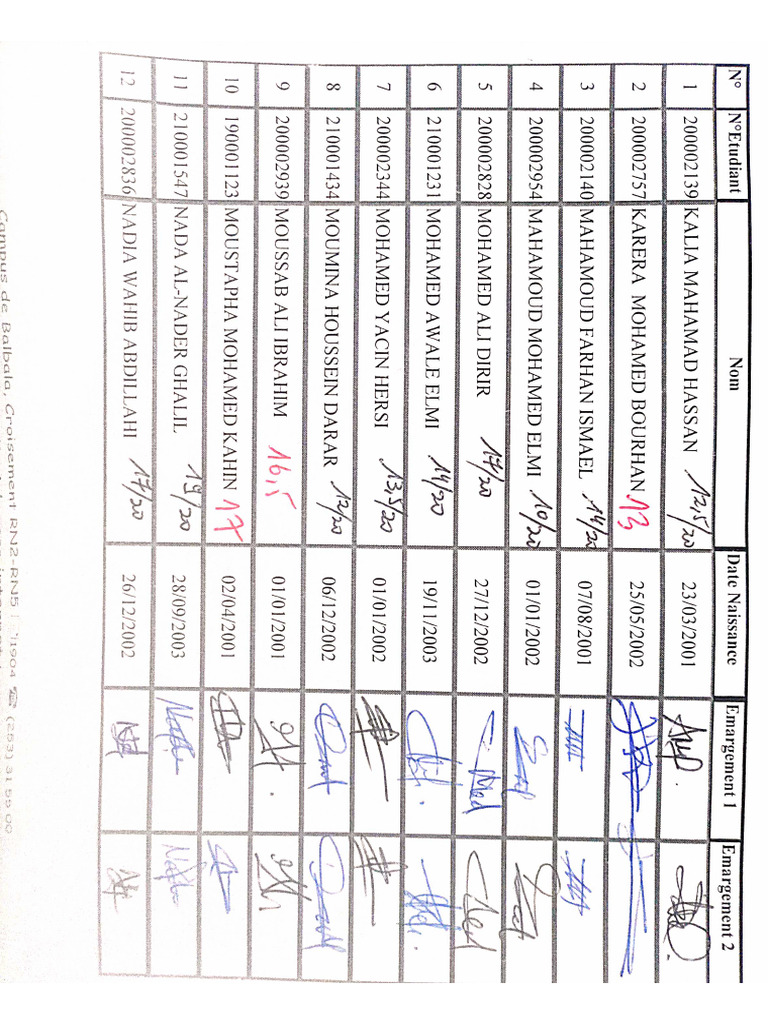 N° N°Etudiant Nom Date Naissance Emargement 1 Emargement 2
1 200002139 KALIA MAHAMAD HASSAN 12,5/20 23/03/2001
2 200002757 KARERA MOHAMED BOURHAN 13 25/05/2002
3 200002140 MAHAMOUD FARHAN ISMAEL 14/20 07/08/2001
4 200002954 MAHAMOUD MOHAMED ELMI 10/20 01/01/2002
5 200002828 MOHAMED ALI DIRIR 17/20 27/12/2002
6 210001231 MOHAMED AWALE ELMI 14/20 19/11/2003
7 200002344 MOHAMED YACIN HERSI 13,5/20 01/01/2002
8 210001434 MOUMINA HOUSSEIN DARAR 12/20 06/12/2002
9 200002939 MOUSSAB ALI IBRAHIM 16,5 01/01/2001
10 190001123 MOUSTAPHA MOHAMED KAHIN 17 02/04/2001
11 210001547 NADA AL-NADER GHALIL 19/20 28/09/2003
12 200002836 NADIA WAHIB ABDILLAHI 17/20 26/12/2002
Campus de Balbala, Croisement RN2-RN5 1904 ☎ (253) 31 55 00